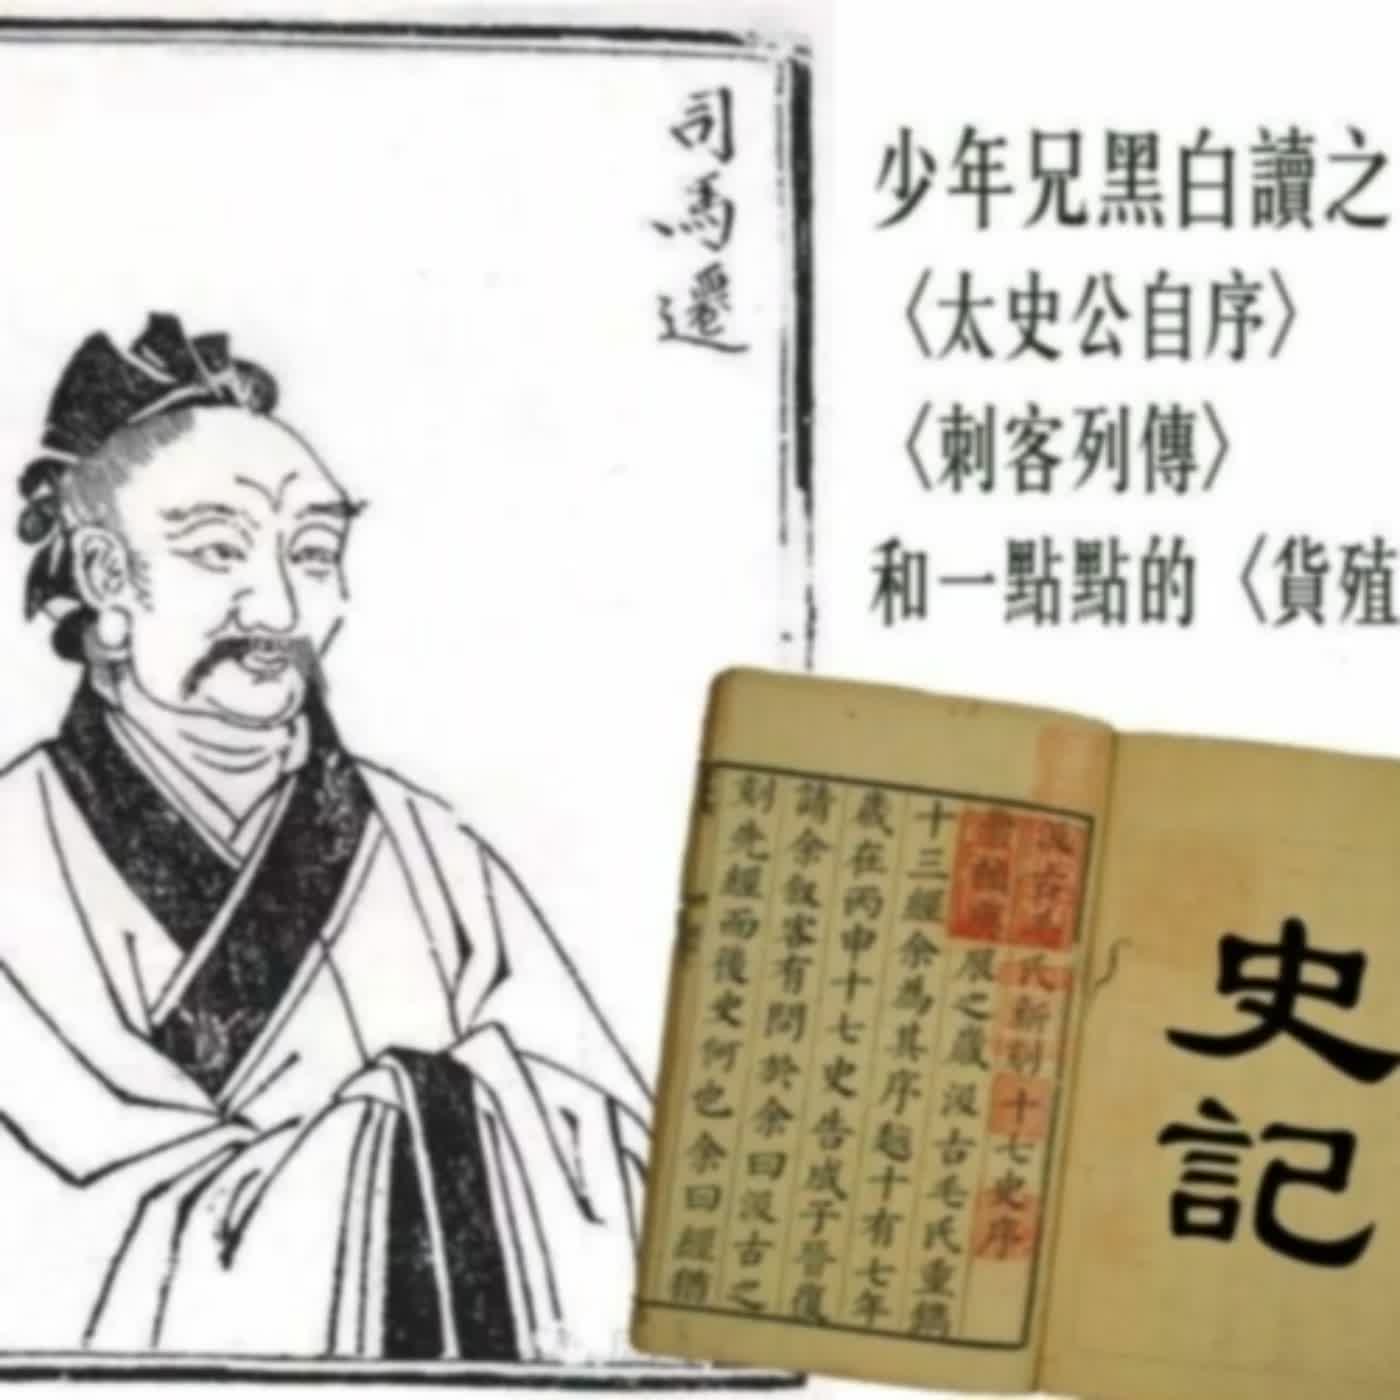 司馬遷
少年兄黑白讀之
〈太史公自序〉
〈刺客列傳〉
和一點點的〈貨殖
史記
汲古毛氏新刻十七史序
展之歲汲古毛氏重鐫
十三經余為其序越十有七年
歲在丙申十七史告成子晉復
請余敘客有問於余曰汲古之
刻先經而後史何也余曰經猶